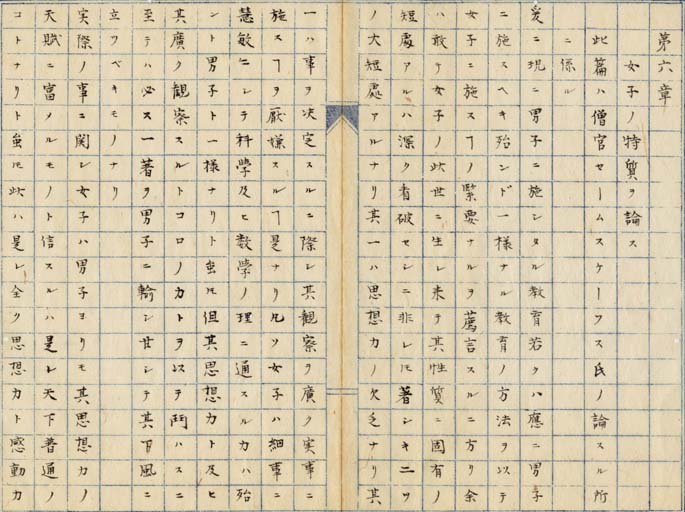 第六章
女子ノ特質ヲ論ス
此篇ハ僧官セームスケーフス氏ノ論スル所
ニ係ル
爰ニ現ニ男子ニ施シタル教育若クハ應ニ男子
ニ施スヘキ殆ンド一様ナル教育ノ方法ヲ以テ
女子ニ施スヿノ緊要ナルヲ薦言スルニ方リ余
ハ敢テ女子ノ此世ニ生レ来テ其性質ニ固有ノ
短處アルハ深ク看破セシニ非レ𪜈著シキ二ツ
ノ大短處アルナリ其一ハ思想力ノ欠乏ナリ其
一ハ事ヲ决定スルニ際シ其觀察ヲ廣ク実事ニ
施スヿヲ厭嫌スルヿ是ナリ凡ソ女子ハ細事ニ
慧敏ニシテ科學及ヒ數學ノ理ニ通スル力ハ殆
ント男子ト一様ナリト虽𪜈但其思想力ト及ヒ
其廣ク觀察スルトコロノ力トヲ以テ鬥ハスニ
至テハ必ス一著ヲ男子ニ輸シ甘シテ其下風ニ
立ツベキモノナリ
実際ノ事ニ関シ女子ハ男子ヨリモ其思想力ノ
天賦ニ富メルモノト信スルハ是レ天下普通ノ
コトナリト虽𪜈此ハ是レ全ク思想力ト感動力